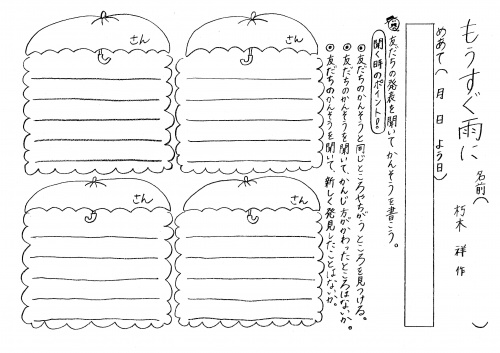 もうすぐ雨に
朽木 祥 作
名前( )
めあて( 月 日 よう日)
友だちの発表を聞いて、かんそうを書こう。
聞く時のポイント!!
◎友だちのかんそうと同じところやちがうところを見つける。
◎友だちのかんそうを聞いて、かんじ方がかわったところはないか。
◎友だちのかんそうを聞いて、新しく発見したことはないか。
さん
さん
さん
さん